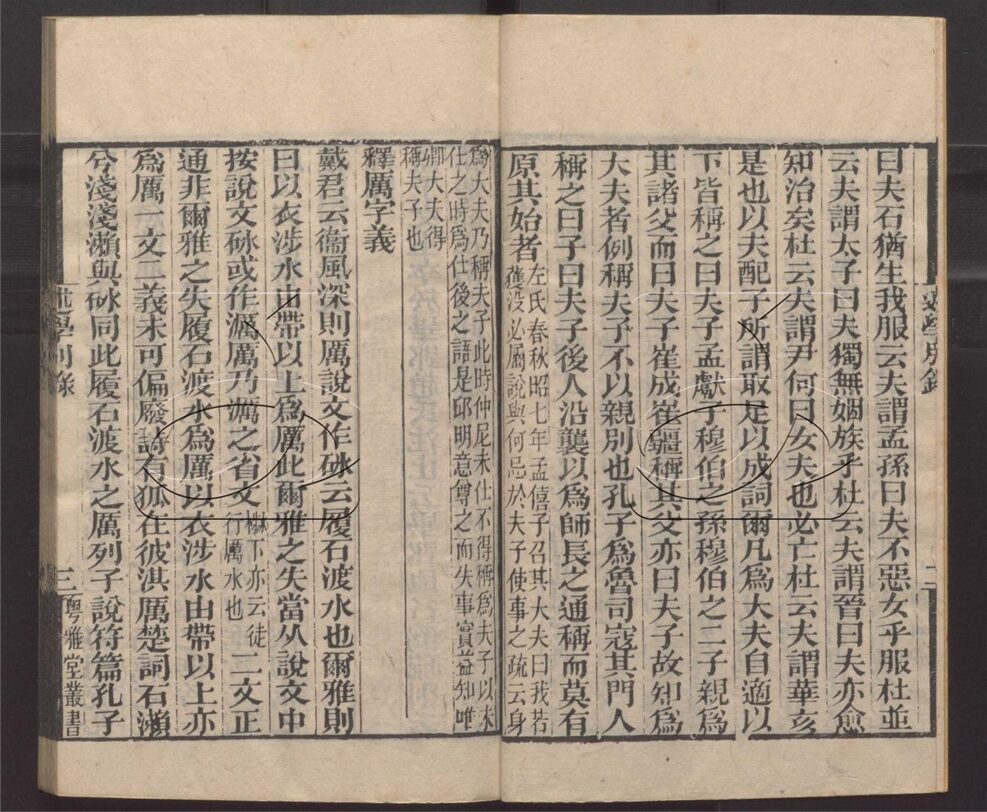 曰夫石猶生我服云夫謂孟孫曰夫不惡女乎服杜並
云夫謂太子曰夫獨無姻族乎杜云夫謂晉曰夫亦愈
知治矣杜云夫謂尹何曰女夫也必亡杜云夫謂華亥
是也以夫配子所謂取足以成詞爾凡爲大夫自適以
下皆稱之曰夫子孟獻子穆伯之孫穆伯之二子親爲
其諸父而曰夫子崔成崔疆稱其父亦曰夫子故知爲
大夫者例稱夫子不以親別也孔子爲魯司寇其門人
稱之曰子曰夫子後人沿襲以爲師長之通稱而莫有
原其始者
左氏春秋昭七年孟僖子召其大夫曰我若
獲没必屬說與何忌於夫子使事之疏云身
爲大夫乃稱夫子此時仲尼未仕不得稱爲夫子以未
仕之時爲仕後之語是邱明意尊之而失事實益知唯
卿大夫得
稱夫子也
釋厲字義
戴君云衞風深則厲說文作砅云履石渡水也爾雅則
曰以衣涉水由帶以上爲厲此爾雅之失當从說文中
按說文砅或作濿厲乃濿之省文
橪下亦云徒
行厲水也
二文正
通非爾雅之失履石渡水爲厲以衣涉水由帶以上亦
爲厲一文二義未可偏廢詩有狐在彼淇厲楚詞石瀨
兮淺淺瀨與砅同此履石渡水之厲列子說符篇孔子
述學別錄
二
述學別錄
三
粵雅堂叢書